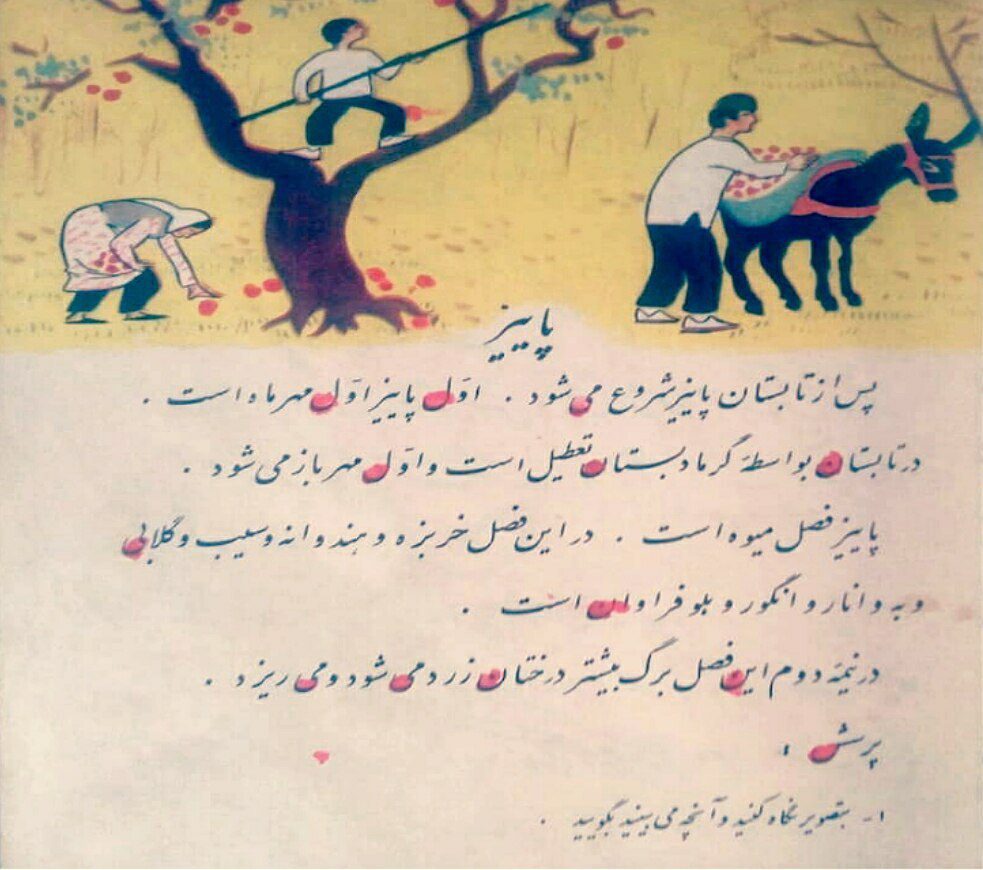 پاییز
پس از تابستان پاییز شروع می شود . اوّل پاییز اوّل مهر ماه است .
در تابستان بواسطهٔ گرما دبستان تعطیل است و اوّل مهر باز می شود .
پاییز فصل میوه است . در این فصل خربزه و هندوانه و سیب و گلابی
و به و انار و انگور و هلو فراوان است .
در نیمهٔ دوم این فصل برگ بیشتر درختان زرد می شود و می ریزد .
پرسش :
۱- بتصویر نگاه کنید و آنچه می بینید بگویید .